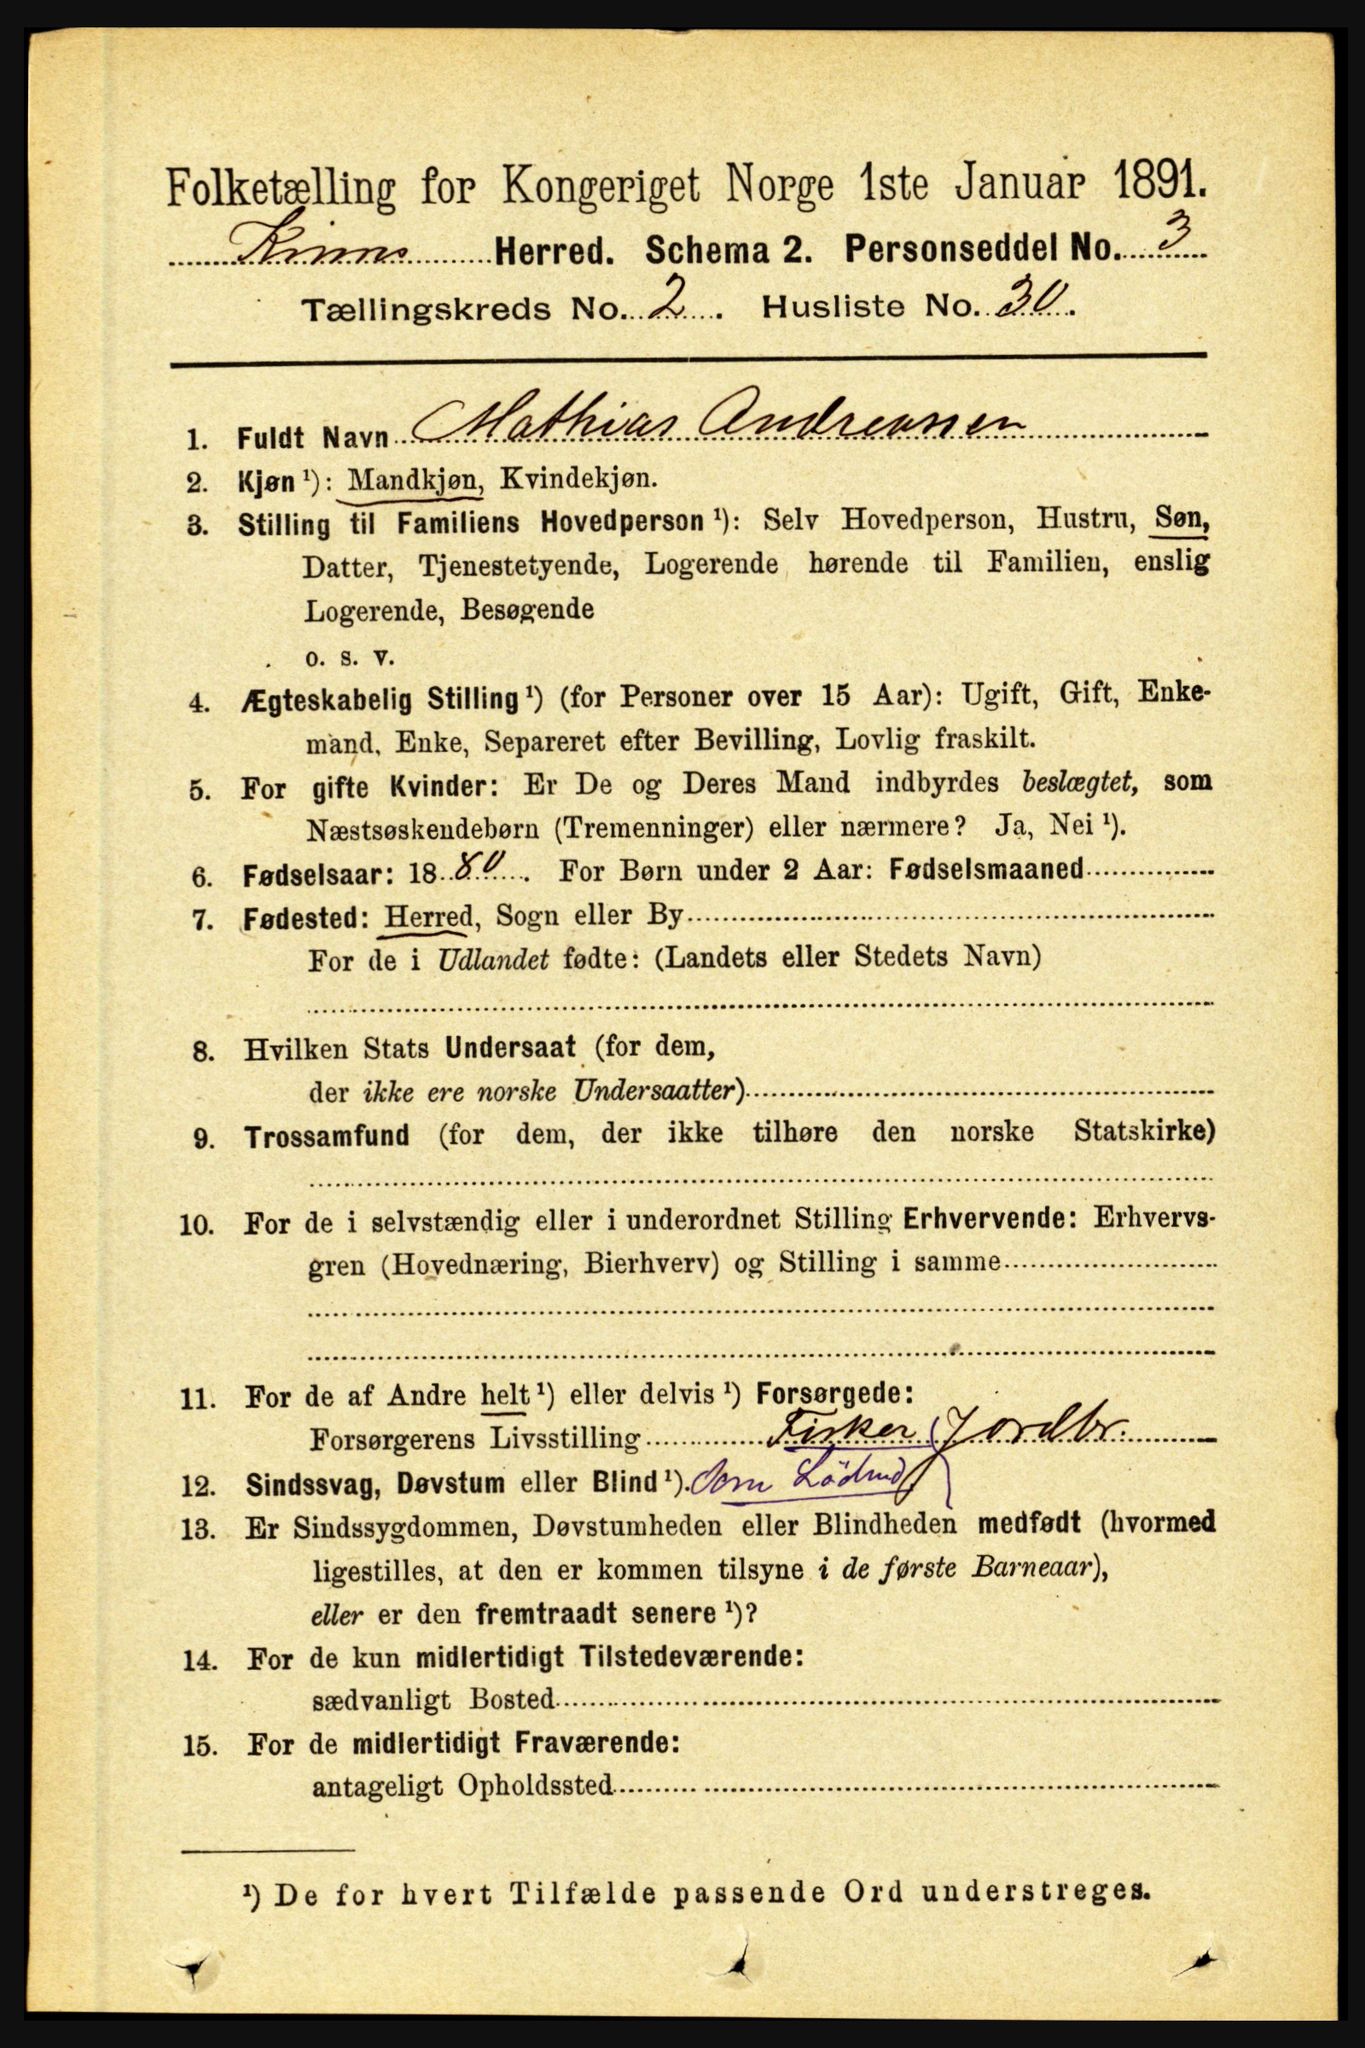 Folketælling for Kongeriget Norge 1ste Januar 1891.
Kinns Herred. Schema 2. Personseddel No. 3
Tællingskreds No. 2. Husliste No. 30.
1. Fuldt Navn Mathias Andreassen
2. Kjøn ¹): Mandkjøn, Kvindekjøn.
3. Stilling til Familiens Hovedperson ¹): Selv Hovedperson, Hustru, Søn,
Datter, Tjenestetyende, Logerende hørende til Familien, enslig
Logerende, Besøgende
o. s. v.
4. Ægteskabelig Stilling ¹) (for Personer over 15 Aar): Ugift, Gift, Enke-
mand, Enke, Separeret efter Bevilling, Lovlig fraskilt.
5. For gifte Kvinder: Er De og Deres Mand indbyrdes beslægtet, som
Næstsøskendebørn (Tremenninger) eller nærmere? Ja, Nei ¹).
6. Fødselsaar: 1880. For Børn under 2 Aar: Fødselsmaaned
7. Fødested: Herred, Sogn eller By
For de i Udlandet fødte: (Landets eller Stedets Navn)
8. Hvilken Stats Undersaat (for dem,
der ikke ere norske Undersaatter)
9. Trossamfund (for dem, der ikke tilhøre den norske Statskirke)
10. For de i selvstændig eller i underordnet Stilling Erhvervende: Erhvervs-
gren (Hovednæring, Bierhverv) og Stilling i samme
11. For de af Andre helt ¹) eller delvis ¹) Forsørgede:
Forsørgerens Livsstilling Fisker (Jordbr.
12. Sindssvag, Døvstum eller Blind ¹). som
13. Er Sindssygdommen, Døvstumheden eller Blindheden medfødt (hvormed
ligestilles, at den er kommen tilsyne i de første Barneaar),
eller er den fremtraadt senere ¹)?
14. For de kun midlertidigt Tilstedeværende:
sædvanligt Bosted
15. For de midlertidigt Fraværende:
antageligt Opholdssted
¹) De for hvert Tilfælde passende Ord understreges.